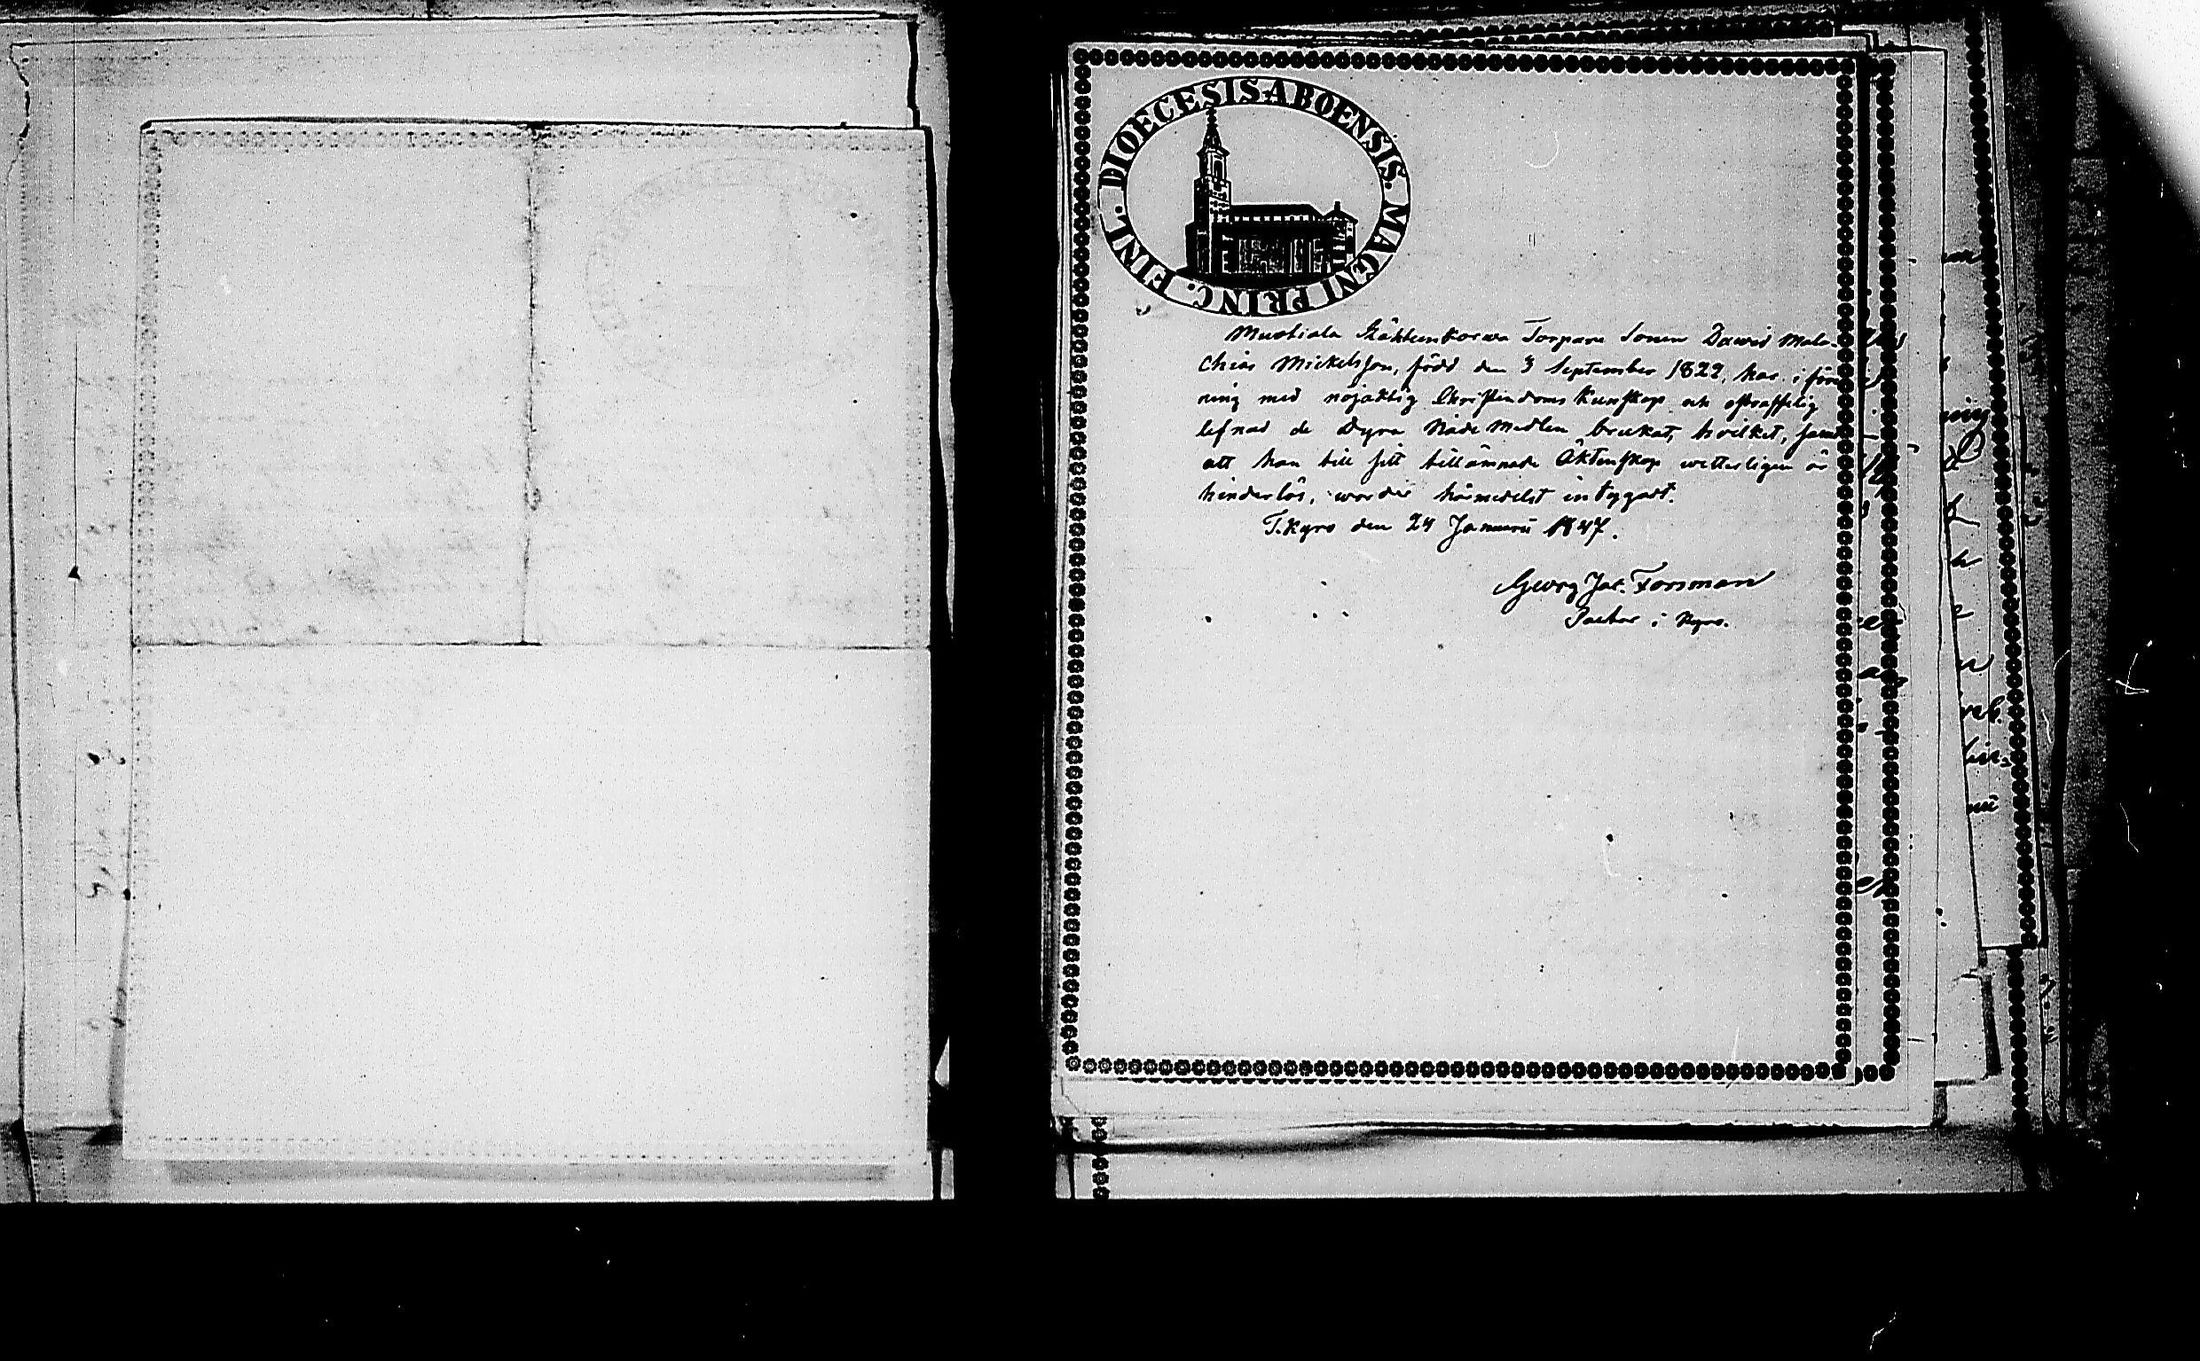 DIOECESIS ABOENSIS. MAGNI PRINC. FINL.
Mustiala Torpare Sonen Dawid Mala-
chias Mickelsson, född den 3 September 1822, har i före
ning med nöjaktig Christendoms Kunskap och ostrafflig
lefnad de Dyra Nåde Medlen brukat, hvilket, samt
att han till sitt tillämnade Äktenskap wetterligen är
hinderlös, warder härmedelst intygadt.
T. Kyro den 24 Januarii 1847.
Georg Jac. Forsman
Pastor i Kyro.